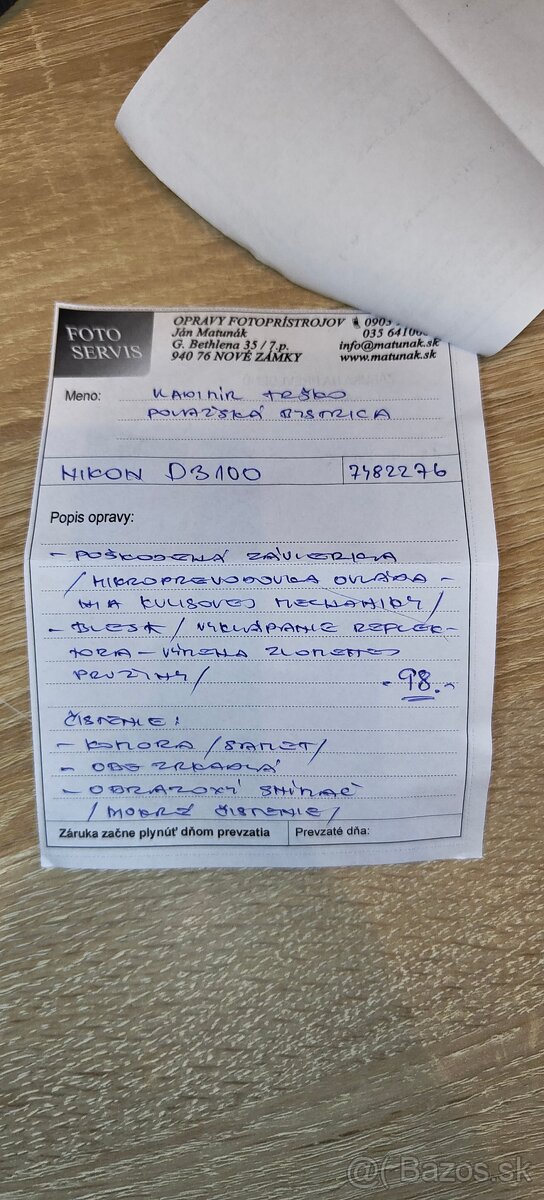 FOTO
SERVIS
OPRAVY FOTOPRÍSTROJOV 0903
Ján Matunák 035 6410
G. Bethlena 35 / 7.p. info@matunak.sk
940 76 NOVÉ ZÁMKY www.matunak.sk
Meno:
POVAŽSKÁ BYSTRICA
NIKON D3100 7482276
Popis opravy:
- POŠKODENÁ ZÁVIERKA
/MIKROPREVODOVKA OVLÁDA-
NIA KULISOVEJ MECHANIKY/
- BLESK / VYKLÁPANIE REFLEK-
TORA - VÝMENA ZLOMENEJ
PRUŽINY/ - 98.-
ČISTENIE:
- KOMORA /SAMET/
- OBE ZRKADLÁ
- OBRAZOVÝ SNÍMAČ
/MOKRÉ ČISTENIE/
Záruka začne plynúť dňom prevzatia Prevzaté dňa:
@( Bazos.sk